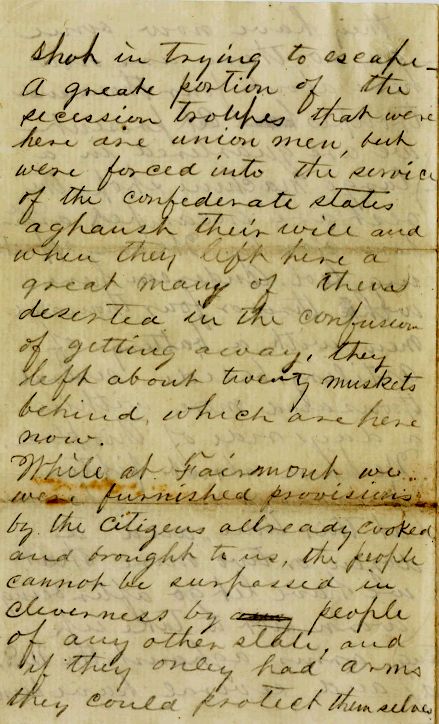 shot in trying to escape-
A greate portion of the
secession troopes that were
here are union men, but
were forced into the service
of the confederate states
aghanst their will and
when they left here a
great many of them
deserted in the confusion
of getting away, they
left about twenty muskets
behind, which are here
now.
While at Fairmont we
were furnished provisions
by the Citizens allready cooked
and brought to us, the people
cannot be surpassed in
cleverness by any people
of any other state, and
if they onley had arms
they could protect themselves